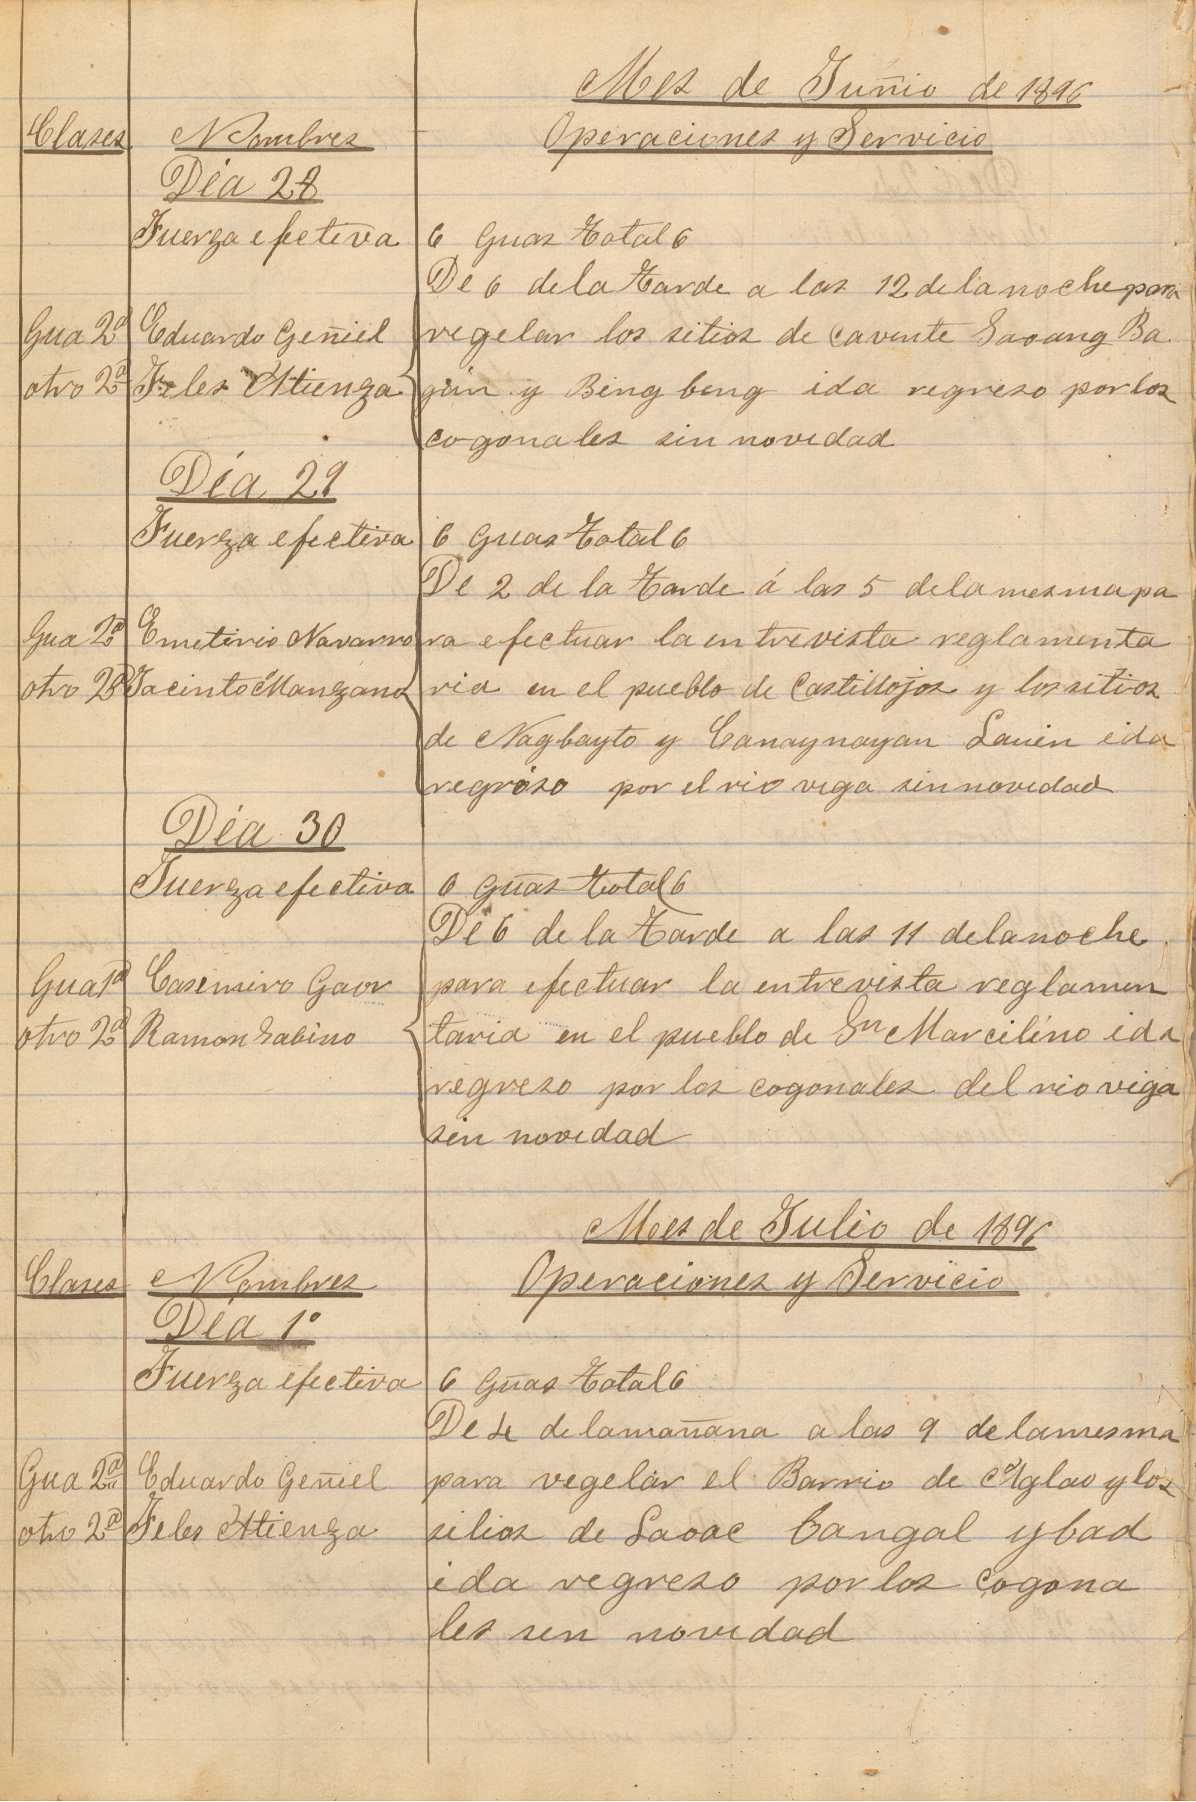 Mes de Junio de 1896
Clases Nombres Operaciones y Servicio
Dia 28
Fuerza efectiva 6 Guas Total 6
De 6 de la Tarde a las 12 de la noche para
Gua 2ª Eduardo Geñiel vegelar los sitios de cavente Saoang Ba
otro 2ª Feles Atienza gán y Bing beng ida regreso por los
cogonales sin novedad
Dia 29
Fuerza efectiva 6 Guas Total 6
De 2 de la Tarde á las 5 de la mesma pa
Gua 2ª Emetirio Navarro ra efectuar la entrevista reglamenta
otro 2ª Jacinto Manzano ria en el pueblo de Castillojos y los sitios
de Nagbayto y Canaynayan Lauin ida
regréso por el rio vega sin novedad
Dia 30
Fuerza efectiva 6 Guas Total 6
De 6 de la Tarde a las 11 de la noche
Gua 1ª Casimiro Gaor para efectuar la entrevista reglamen
otro 2ª Ramon Sabino taria en el pueblo de Sn Marcilino ida
regreso por los cogonales del rio viga
sin novedad
Mes de Julio de 1896
Clases Nombres Operaciones y Servicio
Dia 1º
Fuerza efectiva 6 Guas Total 6
De 4 de la mañana a las 9 de la mesma
Gua 2ª Eduardo Geñiel para vegelar el Barrio de Aglao y los
otro 2ª Feles Atienza silios de Laoac Cangal y bad
ida regreso por los cogona
les sen novedad